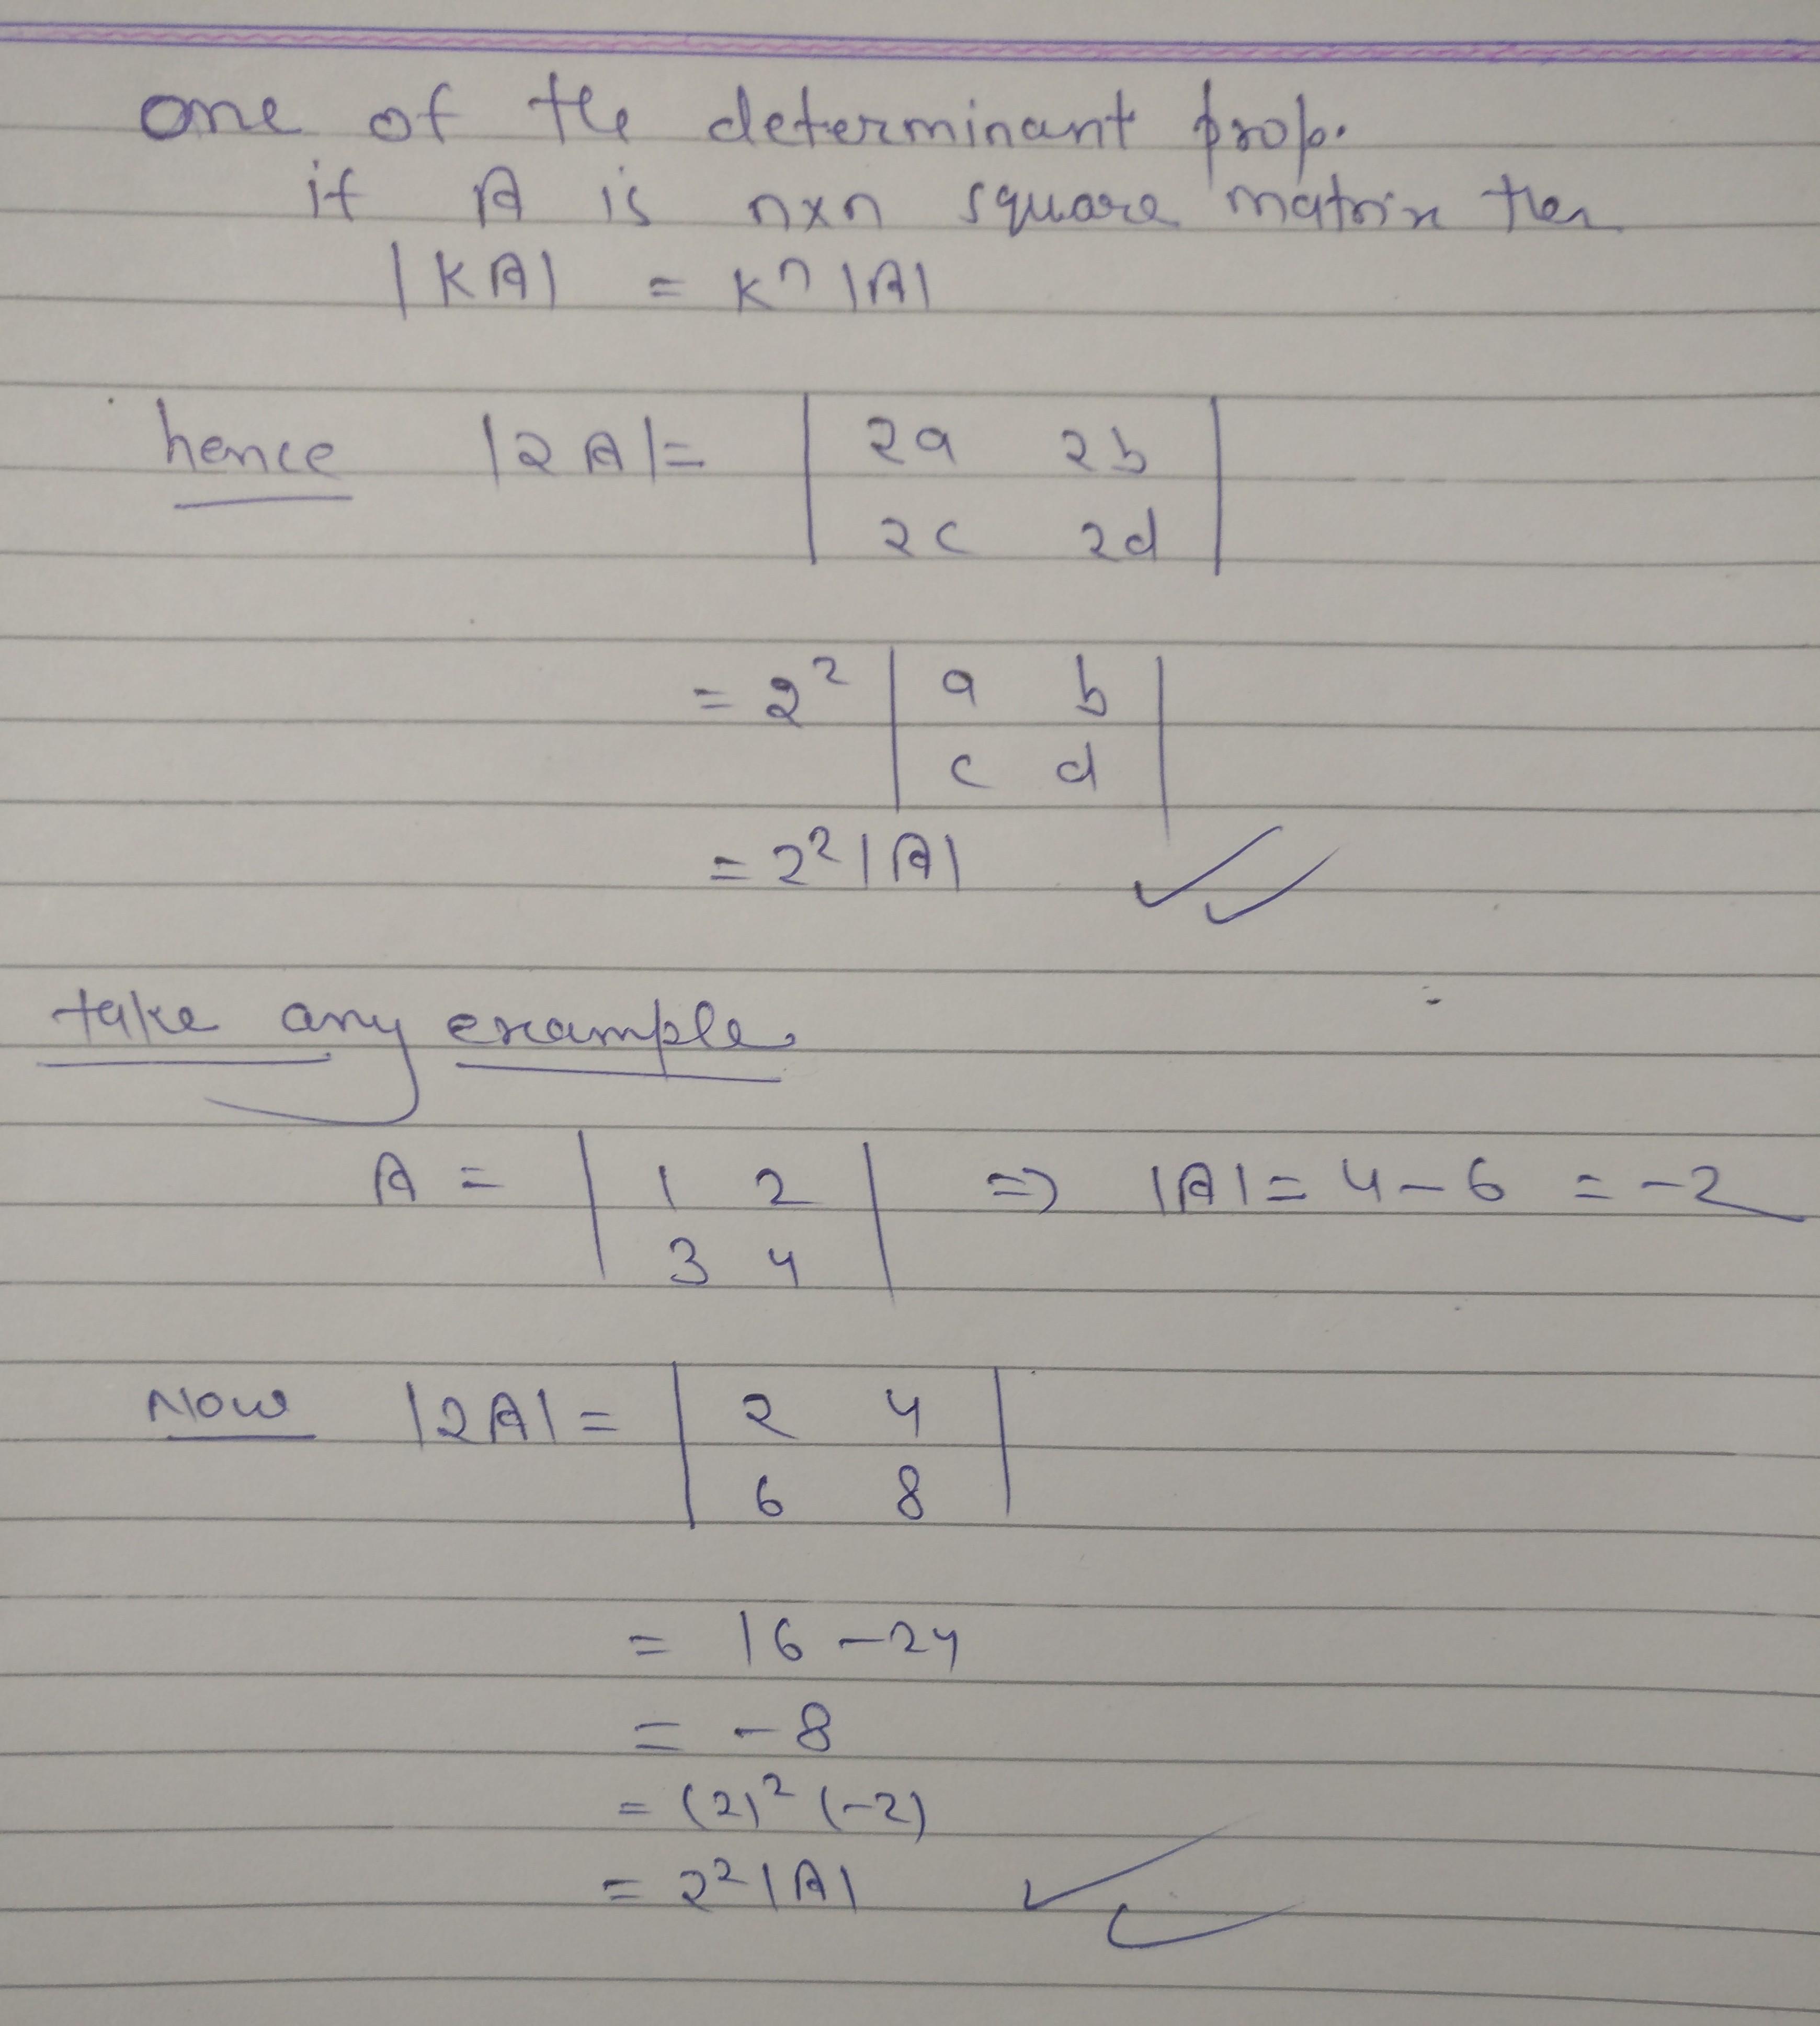 one of the determinant prop.
if A is n×n square matrix then
|KA| = Kⁿ |A|
hence |2A| = | 2a 2b |
| 2c 2d |
= 2² | a b |
| c d |
= 2² |A|
take any example
A = | 1 2 | => |A| = 4 - 6 = -2
| 3 4 |
Now |2A| = | 2 4 |
| 6 8 |
= 16 - 24
= - 8
= (2)² (-2)
= 2² |A|